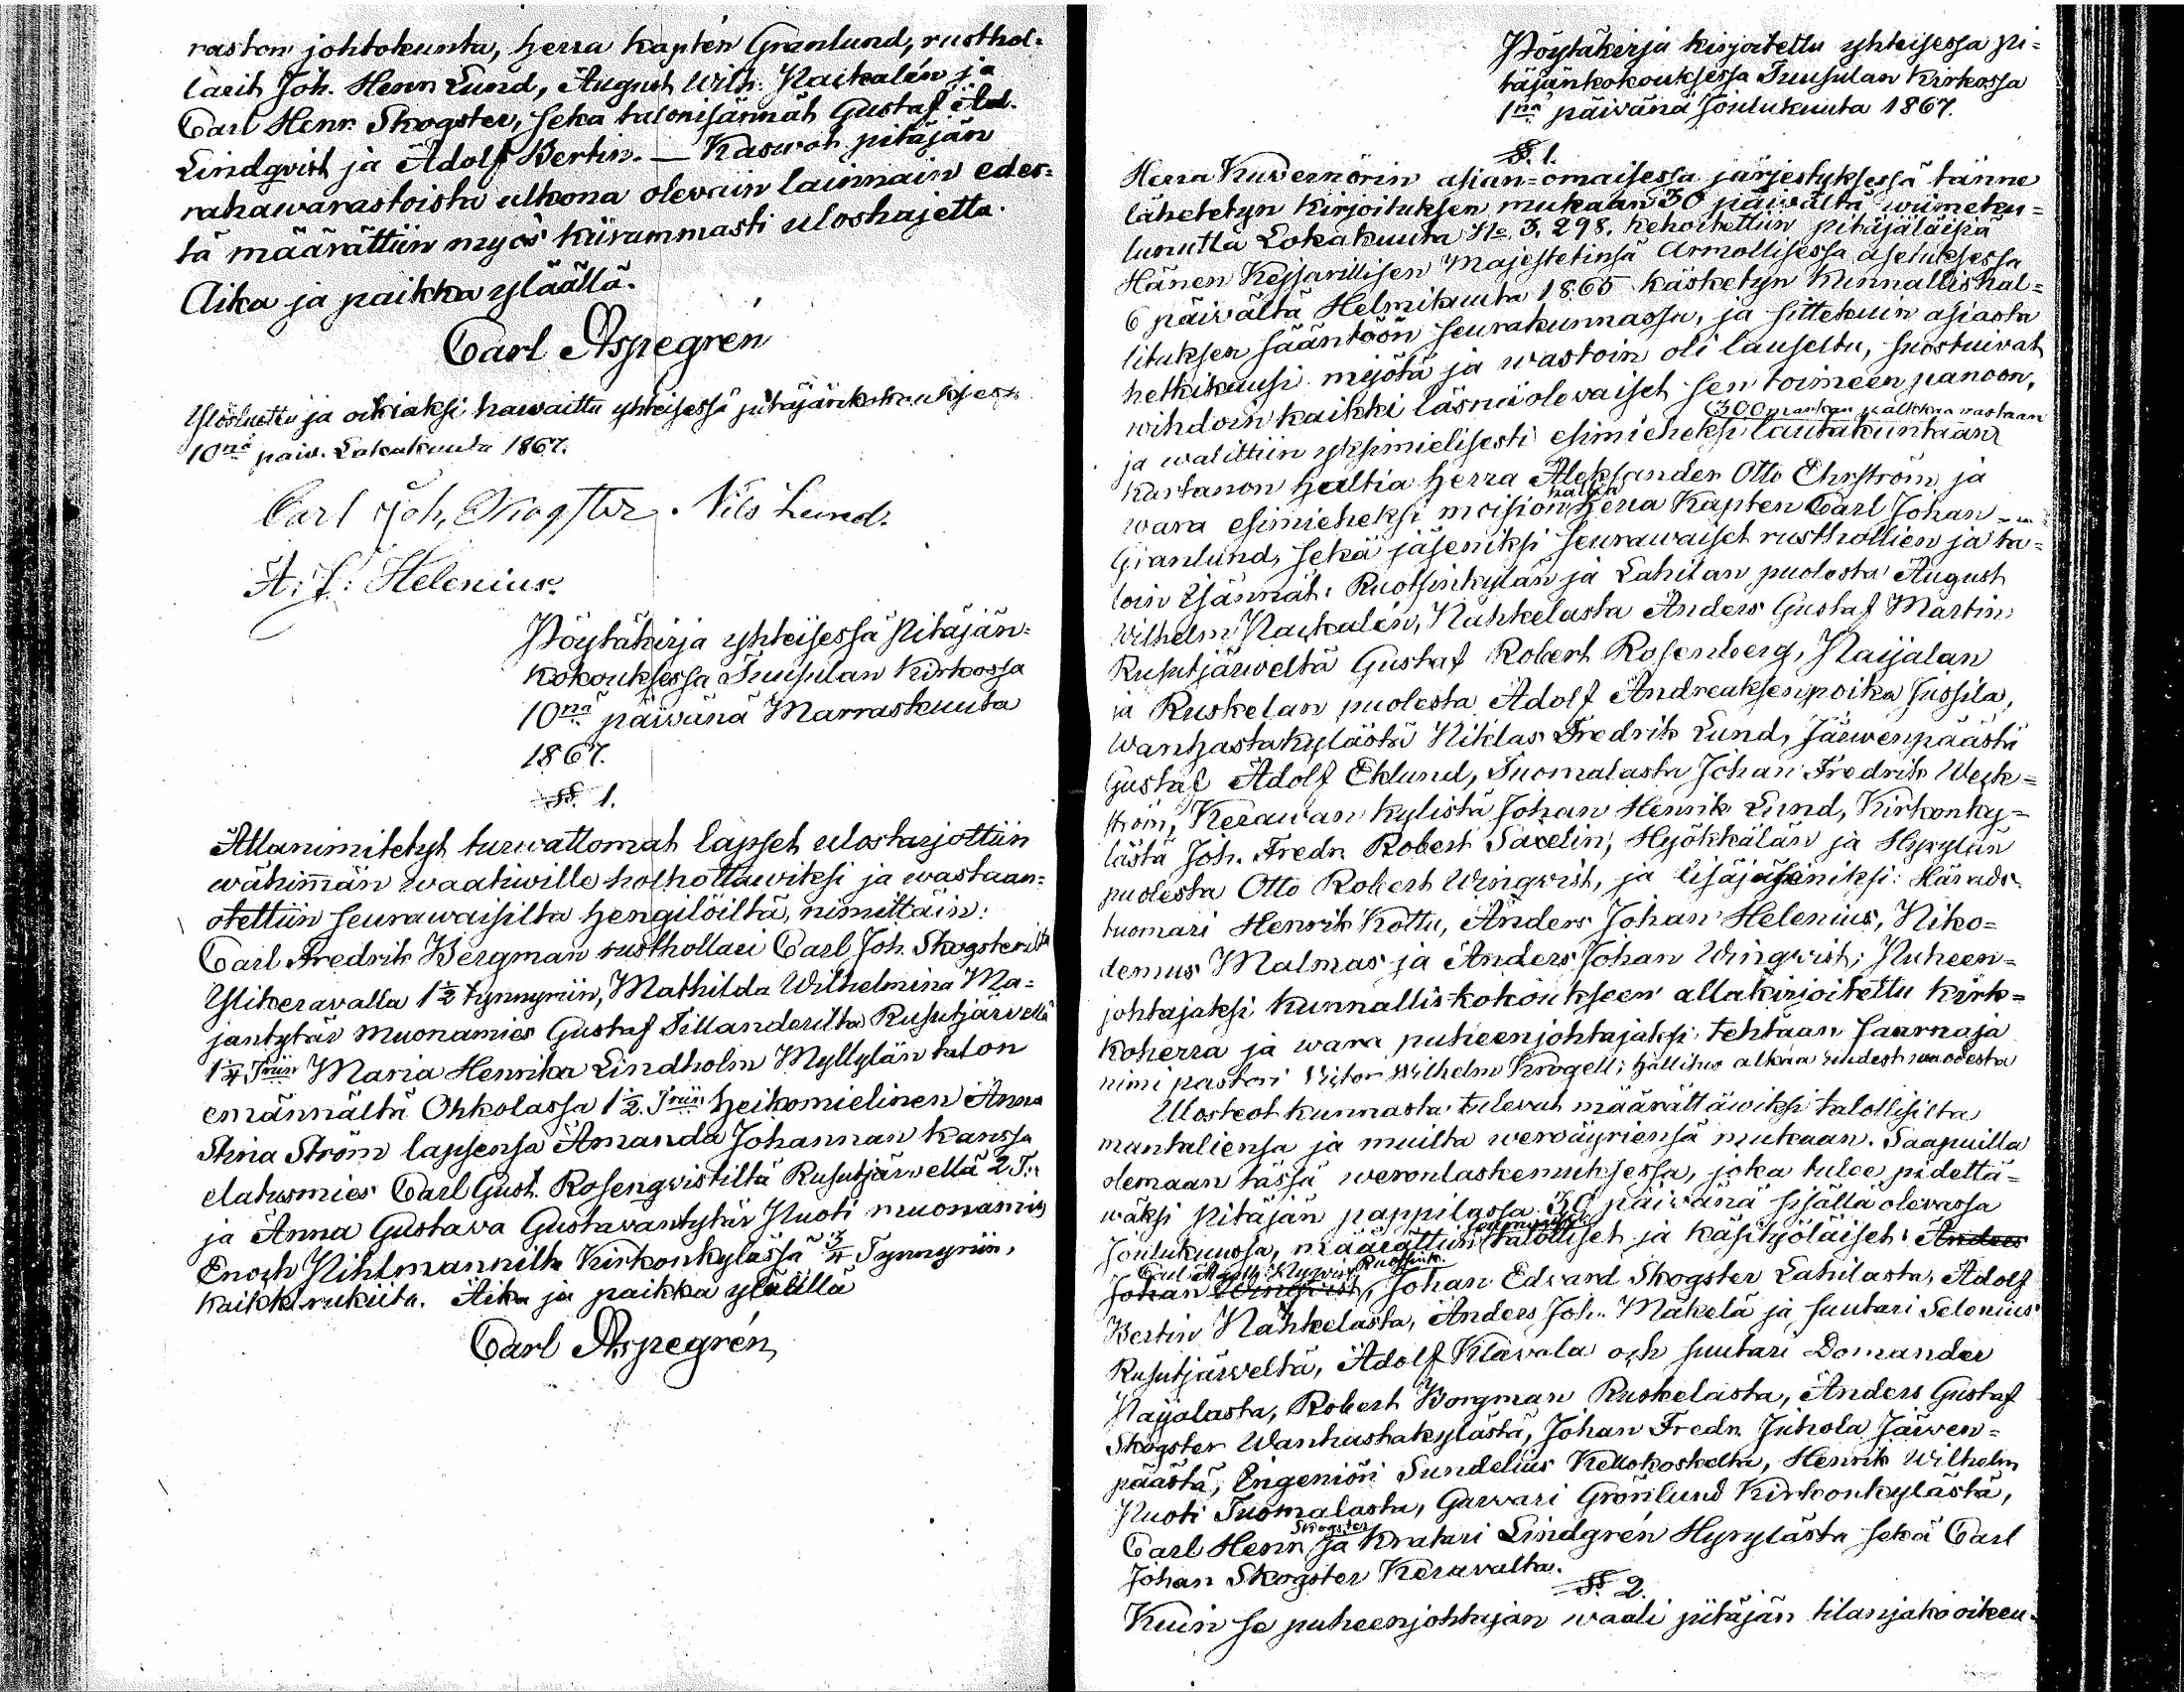 raston johtokunta, herra kaptén Granlund, rusthol-
larit Joh. Henr Lund, August Wilh. Naikalén ja
Carl Henr. Skogster, seka talonisännät Gustaf Ad.
Lindqvist ja Adolf Bertin. — Kaswot pitäjän
rahawarastoista ulkona olewain lainnain edes-
tä määrättiin myös kiirummasti uloshajetta.
Aika ja paikka ylläällä.
Carl Aspegrén
Ylösluettu ja oikiaksi hawaittu yhteisessä pitäjänkokouksessa
10nä päiw. Lokakuuta 1867.
Carl Joh, Skogster. Nils Lund.
A: J: Helenius.
Pöytäkirja yhteisessä Pitäjän=
kokouksessa Tuusulan Kirkossa
10nä päiwänä Marraskuuta
1867.
§. 1.
Allanimitetyt turwattomat lapset ulostarjottiin
wähimän waatiwille holhottawiksi ja wastaan=
otettiin seurawaisilta hengilöiltä, nimittäin:
Carl Fredrik Bergman rusthollari Carl Joh. Skogsterilta
Ylikeravalla 1½ tynnyriin, Mathilda Wilhelmina Ma=
jantytär muonamies Gustaf Sillanderilta Rusutjärvellä
1¼ Triin Maria Henrika Lindholm Myllylän talon
emännältä Ohkolassa 1½ Triin heikomielinen Anna
Stina Ström lapsensa Amanda Johannan kanssa
elatusmies Carl Gust. Rosenqvistiltä Rusutjärwellä 2 T:
ja Anna Gustava Gustavantytär Nuoti muonamies
Enoch Nihlmannilta Kirkonkylässä ¾ Tynnyriin,
kaikki rukiita. Aika ja paikka ylällä
Carl Aspegrén
Pöytäkirja kirjoitettu yhteisessa pi=
täjänkokouksessa Tuusulan Kirkossa
1nä päiwänä Joulukuuta 1867.
§. 1.
Herra Kuwernörin asian=omaisessa järjestyksessä tänne
lähetetyn Kirjoituksen mukaan 30 päiwältä wiimeku=
lunutta Lokakuuta No 3,298, kehoitettiin pitäjäläisiä
Hänen Kejsarillisen Majestetinsä Armollisessa asetuksessa
6 päivältä Helmikuuta 1865 käsketyn Kunnallishal=
lituksen sääntöön seurakunnassa, ja sittekuin asiasta
hetkikausi mejötä ja wastoin oli lauseltu, suostuivat
wihdoin kaikki läsnäolevaiset sen toimeen panoon,
300 markan palkkaa vastaan
ja walittiin yksimielisesti esimieheksi lautakuntaan
Kartanon haltia herra Aleksander Otto Ehrström ja
haltia
wara esimieheksi moision herra Kapten Carl Johan
Granlund, sekä jäseniksi seurawaiset rusthollien ja ta=
loin Isännät: Ruotsinkylän ja Lahitan puolesta August
Wilhelm Naikalén, Nahkelasta Anders Gustaf Martin
Rusutjärweltä Gustaf Robert Rosenberg, Naijalan
ja Ruskelan puolesta Adolf Andreaksenpoika Jussila,
Wanhastakylästä Niklas Fredrik Lund, Järwenpäästä
Gustaf Adolf Eklund, Tuomalasta Johan Fredrik Weck=
ström, Kerawan kylistä Johan Henrik Lund, Kirkonky=
lästä Joh. Fredr. Robert Savelin, Hyökkälän ja Hyrylän
puolesta Otto Robert Wingvist, ja lisäjäseniksi: Härads
tuomari Henrik Kottu, Anders Johan Helenius, Niko=
demus Malmas ja Anders Johan Wingqvist; Puheen=
johtajaksi kunnalliskokoukseen allakirjoitettu kirk=
koherra ja wara puheenjohtajaksi tehtaan saarnaja
nimi pastori Victor Wilhelm Krogell; hallitus alkaa uudesta vuodesta
Uloste​ot kunnasta tulevat määrättäwiksi talollisilta
mantaliensa ja muilta weroäyriensä mukaan. Saapuilla
olemaan tässä weronlaskemuksessa, joka tulee pidettä=
wäksi Pitäjän pappilassa 30 päivänä sisällä olevassa
Joulukuussa, määrättiin talolliset ja käsityöläiset: Anders
Ruotsink.
Johan Wingqvist, Johan Edvard Skogster Lahilasta, Adolf
Bertin Nahkelasta, Anders Joh. Mäkelä ja suutari Selenius
Rusutjärweltä, Adolf Klavola och suutari Domander
Naijalasta, Robert Borgman Ruskelasta, Anders Gustaf
Skogster Wanhastakylästä, Johan Fredr. Juhola Järwen=
päästä, Engeniöri Sundelius Kellokoskelta, Henrik Wilhelm
Nuoti Tuomalasta, Garvari Grönlund Kirkonkylästä,
Skogster
Carl Henr. ja Kratari Lindgrén Hyrylästa sekä Carl
Johan Skogster Keravalta.
§ 2.
Kuin se puheenjohtajan waali pitäjän tilanjako oikeu-